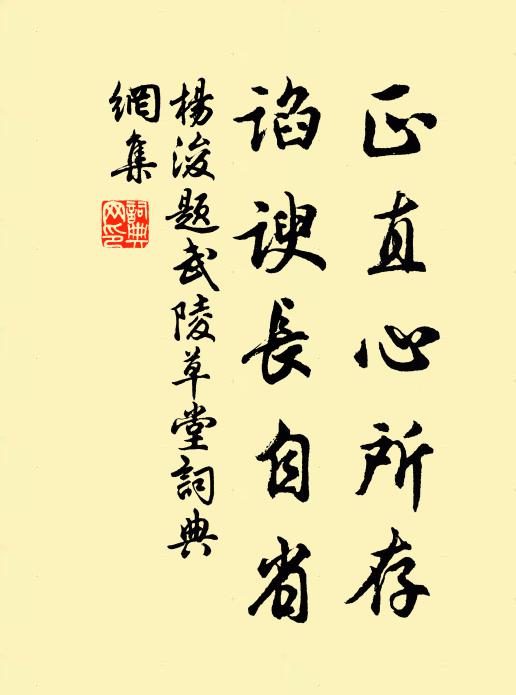 正直心所存
諂諛長自省
楊浚題武陵草堂詞典
網集
詞典
网印